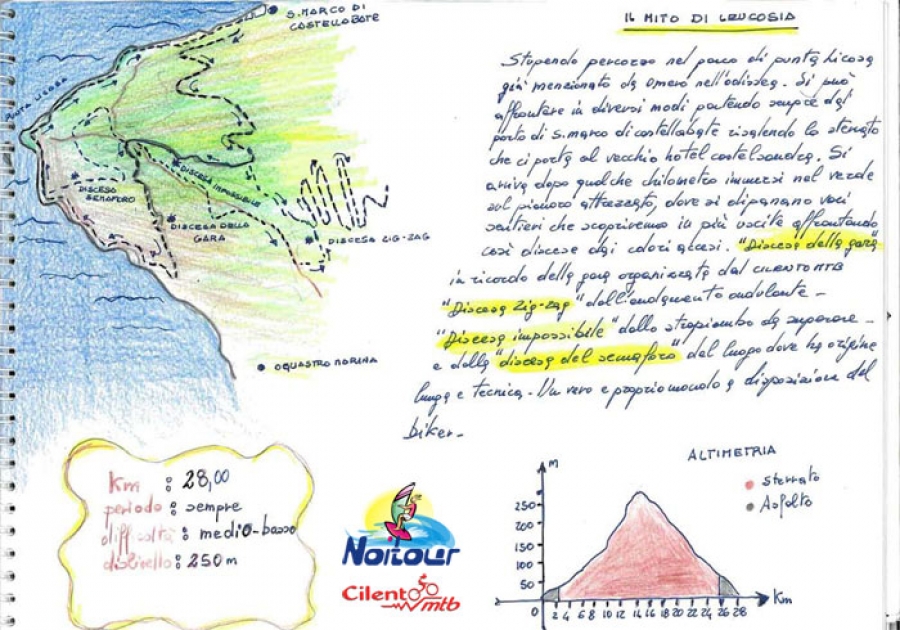 S. MARCO DI
CASTELLABATE
PUNTA LICOSA
DISCESA
SEMAFORO
DISCESA IMPOSSIBILE
DISCESA DELLA
GARA
DISCESA ZIG-ZAG
OGLIASTRO MARINA
IL MITO DI LEUCOSIA
Stupendo percorso nel parco di punta licosa
già menzionato da omero nell'odissea. Si può
affrontare in diversi modi partendo sempre dal
porto di S. marco di castellabate risalendo lo sterrato
che ci porta al vecchio hotel castelsandra. Si
arriva dopo qualche chilometro immersi nel verde
sul pianoro attrezzato, dove si dipanano vari
sentieri che scopriremo in più uscite affrontando
così discese dai colori accesi. "Discesa della gara"
in ricordo della gara organizzata dal CILENTO MTB
"Discesa Zig-zag" dall'andamento ondulante -
"Discesa impossibile" dallo strapiombo da superare -
e dalla "discesa del semaforo" dal luogo dove ha origine
lunga e tecnica. Un vero e proprio mondo a disposizione del
biker -
Km : 28,00
periodo : sempre
difficoltà : medio-basso
dislivello : 250 m
Noitour
Cilento mtb
ALTIMETRIA
sterrato
Asfalto
m
250
200
150
100
50
0 2 4 6 8 10 12 14 16 18 20 22 24 26 28 Km